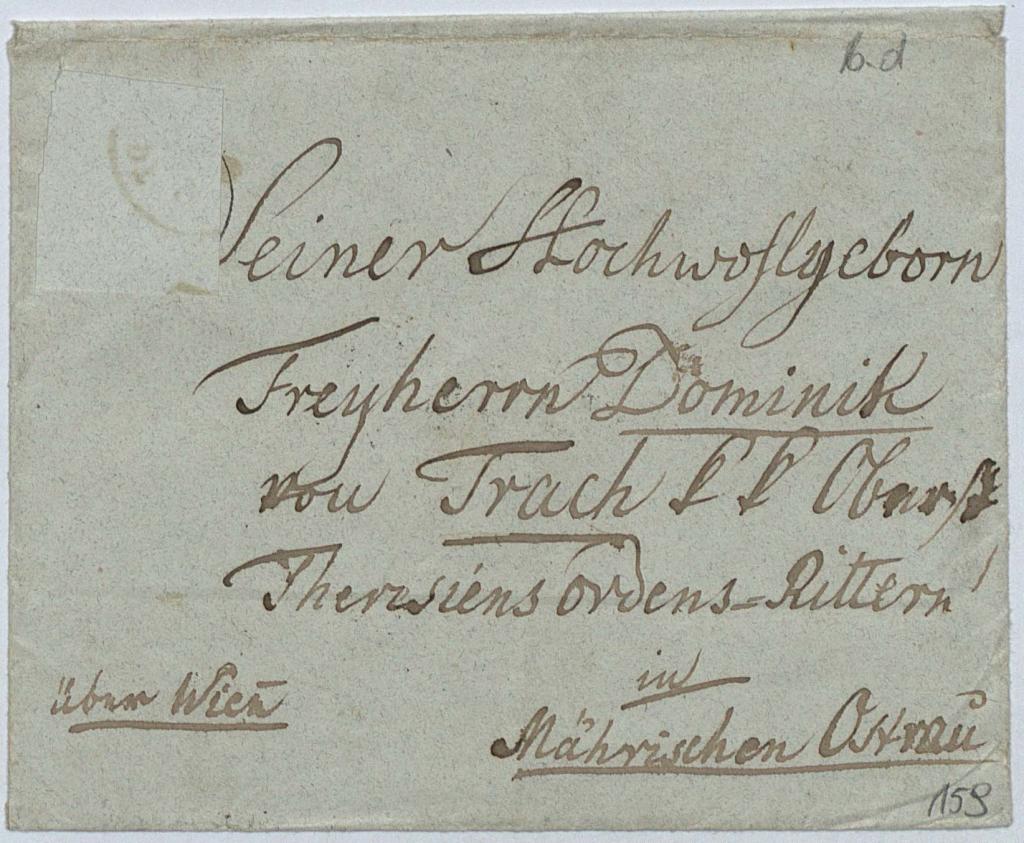 b.d
Seiner Hochwohlgeborn
Freyherrn Dominik
von Trach k k Oberst
Theresiens Ordens-Rittern
in
über Wien
Mährischen Ostrau
159